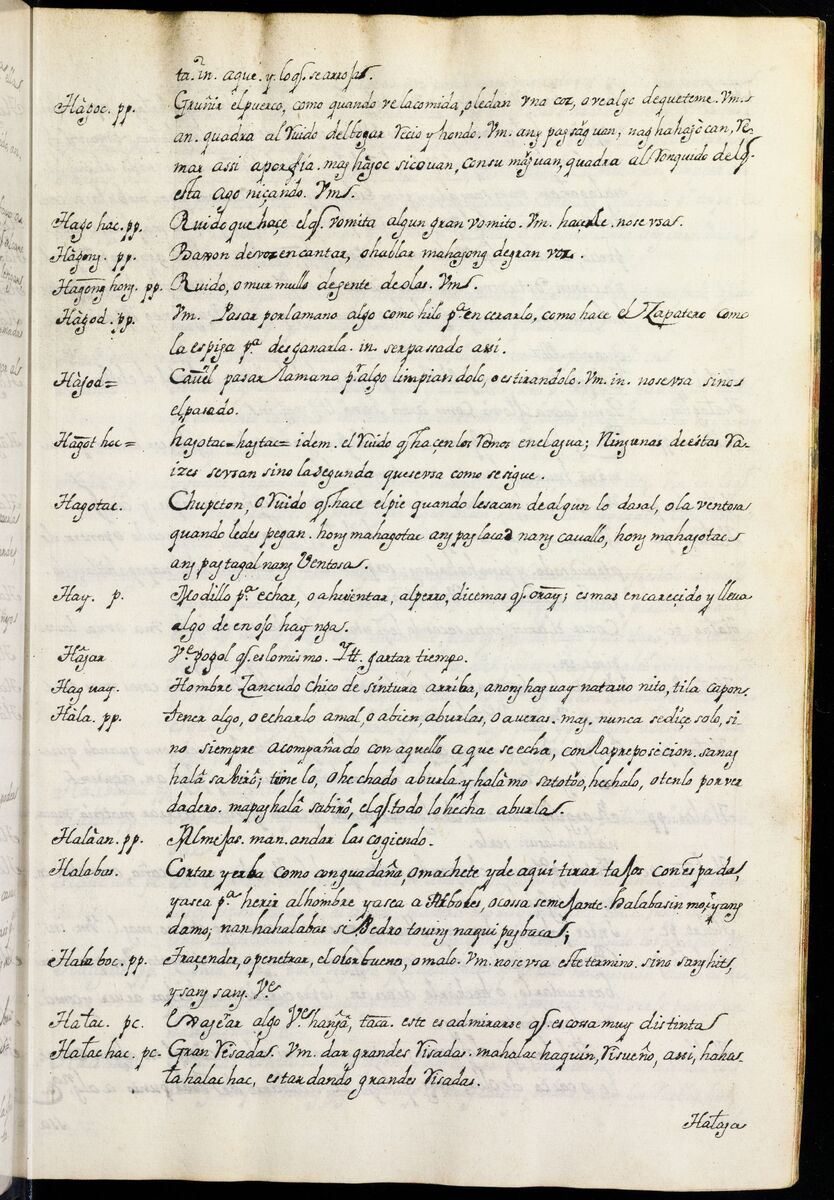 ta. in. aqué. y. lo q̃. se arroja.
Hàgoc. pp. Gruñir el puerco, como quando ve la comida, o le dan vna coz, o ve algo de que teme. Vm.
an. quadra al ruido del bogar recio y hondo. Vm. ang pagságuan, naghahagòcan, re-
mar assi a porfia. maghàgoc sicouan, con su máguan, quadra al ronquido del q̃.
està agoniçando. Vm.
Hagohac. pp. Ruido que haçe el q̃. vomita algun gran vomito. Vm. haçerle. no se vsa.
Hàgong. pp. Baxon de voz en cantar, o hablar mahagong de gran voz.
Hagong hong. pp. Ruido, o murmullo de gente de olas. Vm.
Hàgod. pp. Vm. Pasar por la mano algo como hilo p.ª encerarlo, como hace el Zapatero como
la espiga p.ª desganarla. in. ser passado assi.
Hàgod= pasar la mano p.r algo limpiandolo, o estirandolo. Vm. in. no se vsa sino
el pasado.
Hagot hoc= hagotac= hagtac= idem. el ruido q̃. haçen los remos en el agua; Ningunas de estas ra-
izes se vsan sino la segunda que se vsa como se sigue.
Hagotac. Chupeton, o ruido q̃. hace el pie quando le sacan de algun lodasal, o la ventosa
quando le despegan. hong mahagotac ang paglacad nang cauallo, hong mahagotac
ang pagtagal nang Ventosa.
Hay. p. Modillo p.ª echar, o ahuientar, al perro, dicemas q̃. oray; es mas encareçido y lleva
algo de enojo hay nga.
Hàgar V.e gogol q̃. es lo mismo. Ytt. gastar tiempo.
Haguay. Hombre Zancudo chico de sintura arriba, anong haguay na tauo nito, tila capon.
Hàla. pp. tener algo, o echarlo a mal, o a bien, a burlas, o a veras. mag. nunca se diçe solo, si
no siempre acompañado con aquello a que se echa, con la preposicion. sa nag
halâ sa birô; tiene lo, o hechado a burla. y halà mo sa totoo, hechalo, o tenlo por ver
dadero. mapaghalâ sa birô, el q̃. todo lo hecha a burla.
Halàan. pp. Almejas. man. andar las cogiendo.
Halabas. Cortar yerba como con guadaña, o machete y de aqui tirar tajos con espada,
ya sea p.ª herir al hombre ya sea a Arboles, o cossa semejante. halabasin mo iyang
damo; nanhahalabas si Pedro touing naquipagbaca;
Halaboc. pp. Traçender, o penetrar, el olor bueno, o malo. Vm. no se vsa este termino. sino sanghit,
y sang sang. V.e
Halac. pc. algo V.e hangâ, taca. este es admirarse q̃. es cossa muy distinta
Halachac. pc. Gran risadas. Vm. dar grandes risadas. mahalachaquin, risueño, assi, hahas-
ta halachac, estar dando grandes risadas.
Halaga